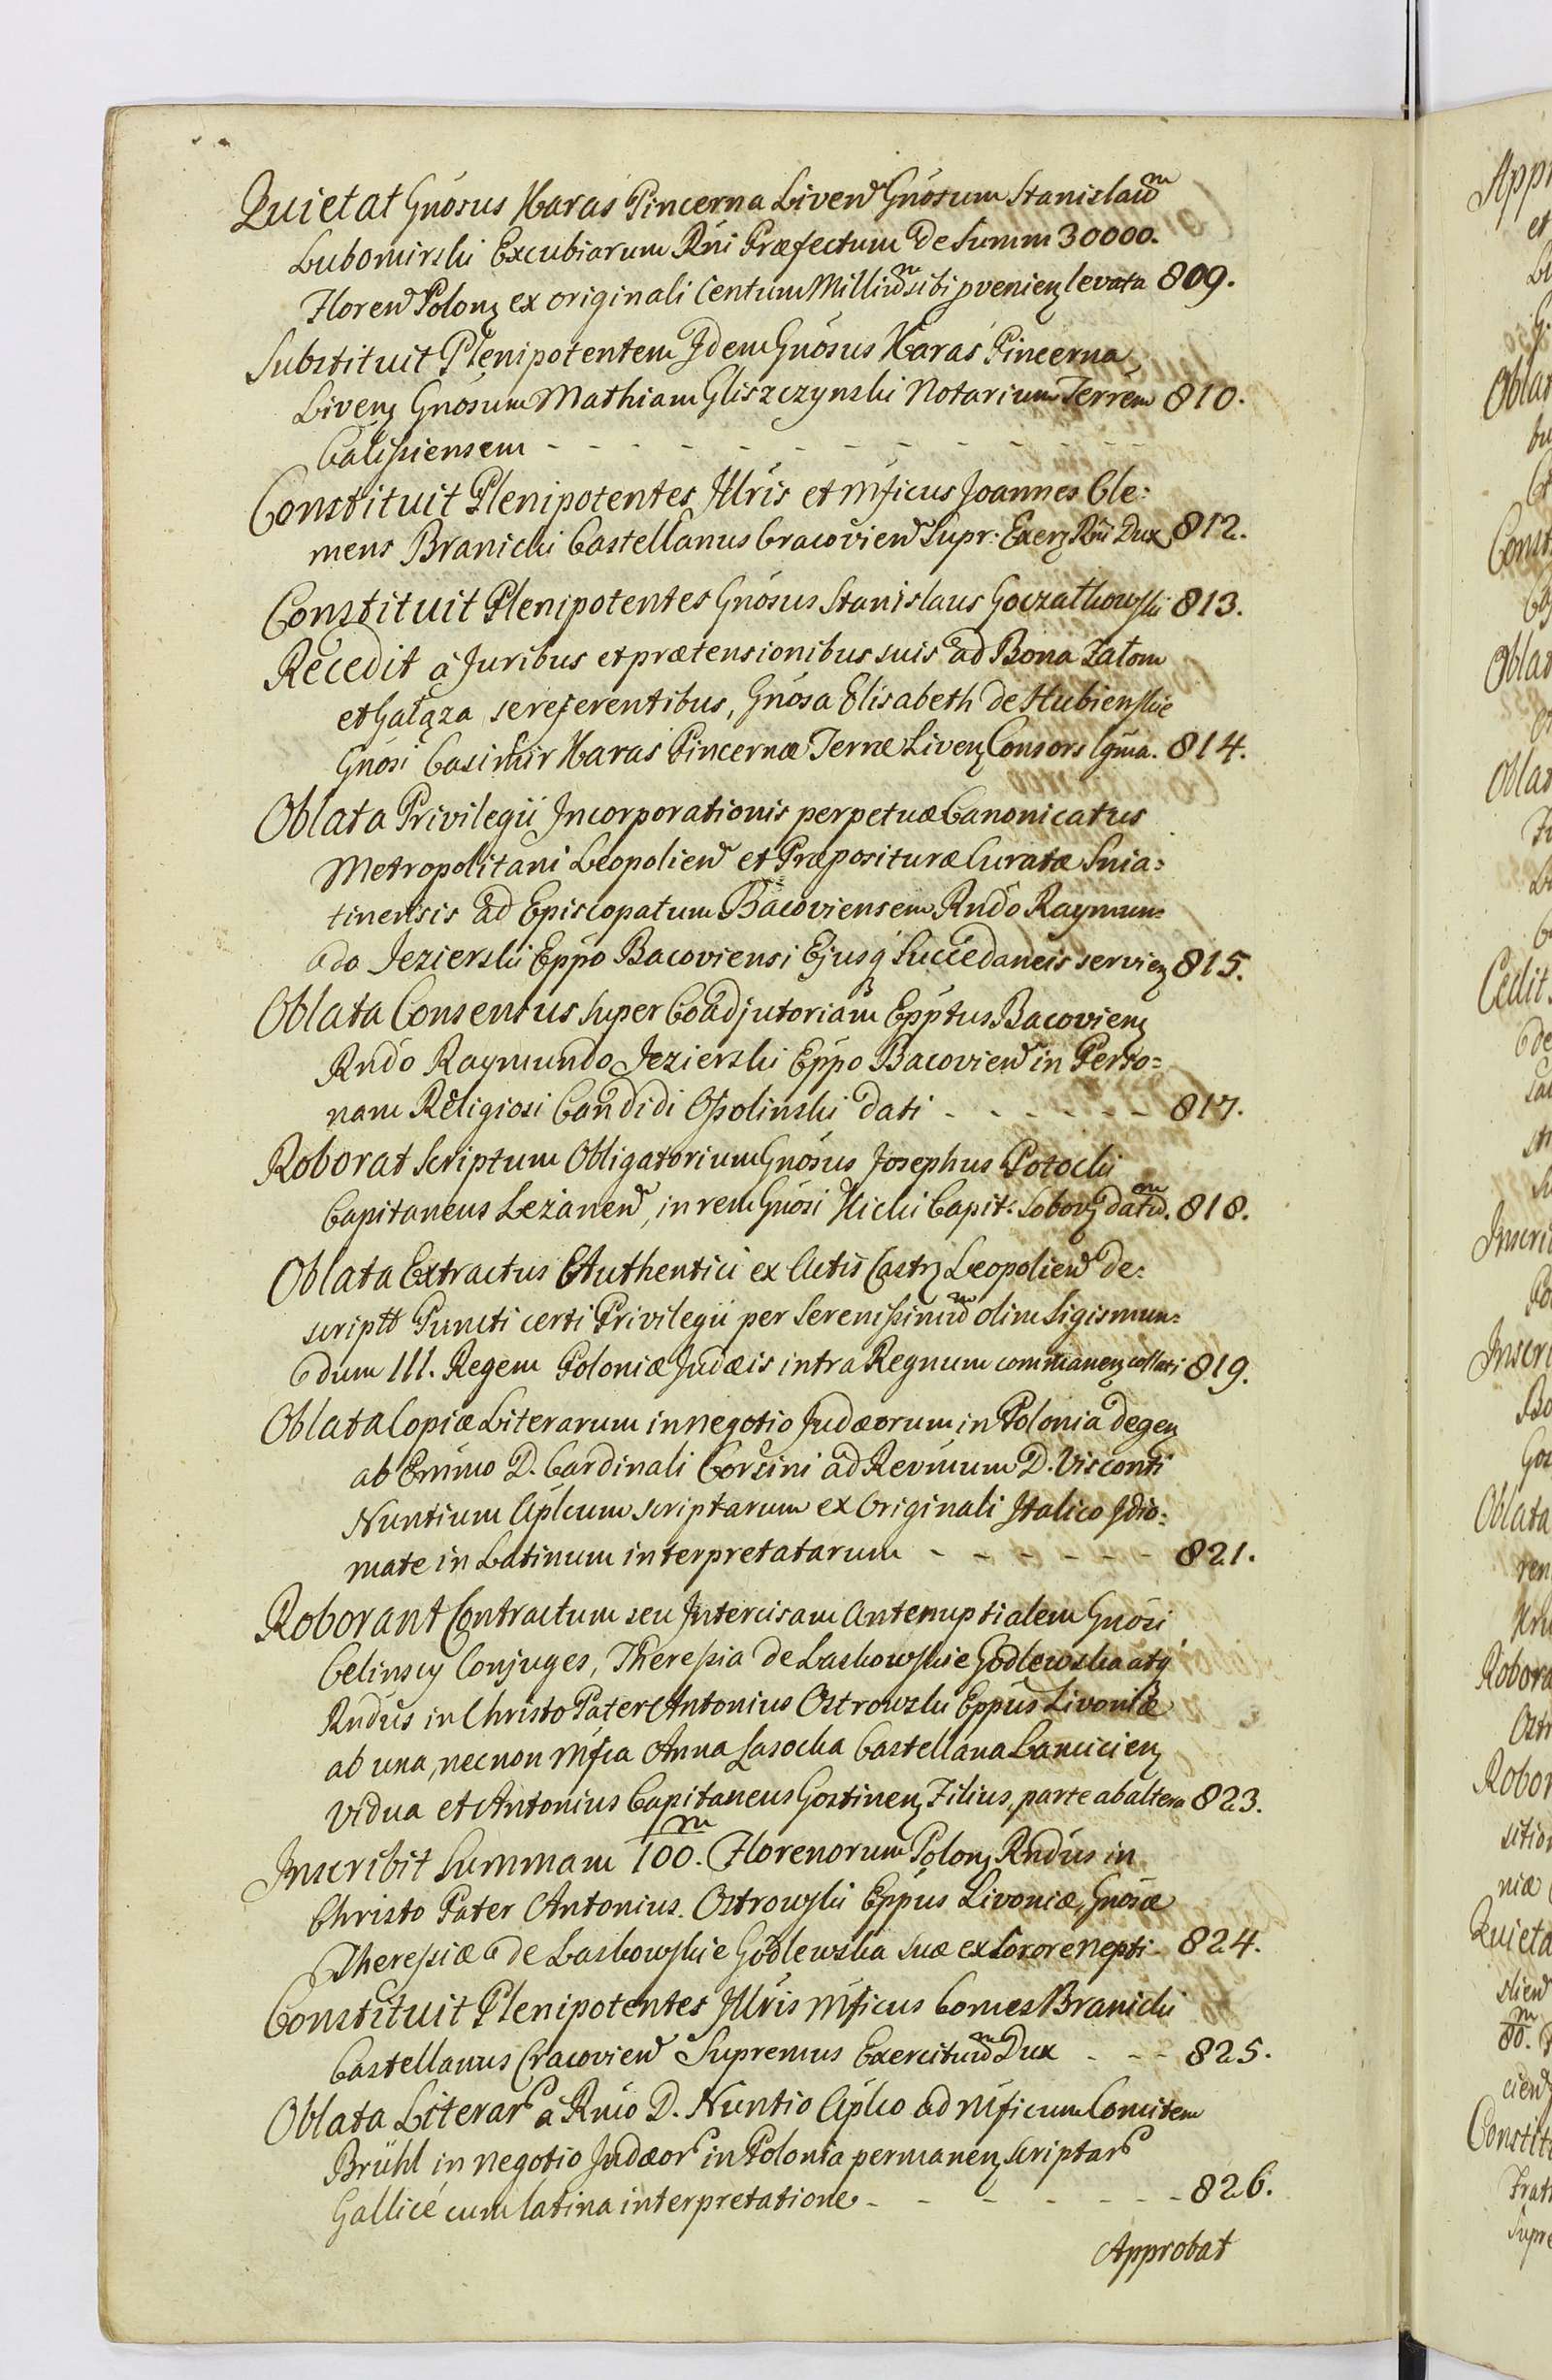 Quietat Gnosus Karas Pincerna Liven Gnosum Stanislaum
Lubomirski Excubiarum Rni Præfectum de Summ 30000.
Floren Polon ex originali Centum Millium sibi provenien levata 809.
Substituit Plenipotentem Idem Gnosus Karas Pincerna
Liven Gnosum Mathiam Gliszczynski Notarium Terrem 810.
Calissiensem - - - - - - - - - - -
Constituit Plenipotentes Illris et Mficus Joannes Cle:
mens Branicki Castellanus Cracovien Supr: Exer Rni Dux 812.
Constituit Plenipotentes Gnosus Stanislaus Goczałkowski 813.
Recedit à Juribus et prætensionibus suis ad Bona
et Gałąza se referentibus, Gnosa Elisabeth de Hubienskie
Gnosi Casimir Karas Pincernæ Terræ Liven Consors lgma. 814.
Oblata Privilegii Incorporationis perpetuæ Canonicatus
Metropolitani Leopolien et Præposituræ Curatæ Snia:
tinensis ad Episcopatum Bacoviensem Rndo Raymun:
do Jezierski Eppo Bacoviensi Ejusq Succedaneis servien 815.
Oblata Consensus super Coadjutoriam Epptus Bacovien
Rndo Raymundo Jezierski Eppo Bacovien in Perso:
nam Religiosi Candidi Ossolinski dati - - - - - - 817.
Roborat Scriptum Obligatorium Gnosus Josephus Potocki
Capitaneus Leżanen, in rem Gnosi Kicki Capit: Sobow datum. 818.
Oblata Extractus Authentici ex Actis Castr Leopolien de:
scriptt Puncti certi Privilegii per Serenissimum olim Sigismun:
dum III. Regem Poloniæ Judæis intra Regnum commanen collati 819.
Oblata Copiæ Literarum in negotio Judæorum in Polonia degen
ab Emmo D. Cardinali Corsini ad Revmum D. Visconti
Nuntium Aplcum scriptarum ex Originali Italico Idio:
mate in Latinum interpretatarum - - - - - - - 821.
Roborant Contractum seu Intercisam Antenuptialem Gnosi
Celinscy Conjuges, Theressia de Laskowskie Godlewska atq
Rndus in Christo Pater Antonius Ostrowski Eppus Livoniæ
ab una, necnon Mfca Anna Lasocka Castellana Lancicien
Vidua et Antonius Capitaneus Gostinen Filius, parte ab altera 823.
Inscribit Summam 100.m Florenorum Polon Rndus in
Christo Pater Antonius Ostrowski Eppus Livoniæ, Gnosæ
Theressiæ de Laskowskie Godlewska suæ ex Sorore nepti 824.
Constituit Plenipotentes Illris Mficus Comes Branicki
Castellanus Cracovien Supremus Exercituum Dux - - - 825.
Oblata Literar à Rmo D. Nuntio Aplco ad Mficum Comitem
Brühl in negotio Judæor in Polonia permanen scriptar
Gallicé cum latina interpretatione - - - - - - - 826.
Approbat